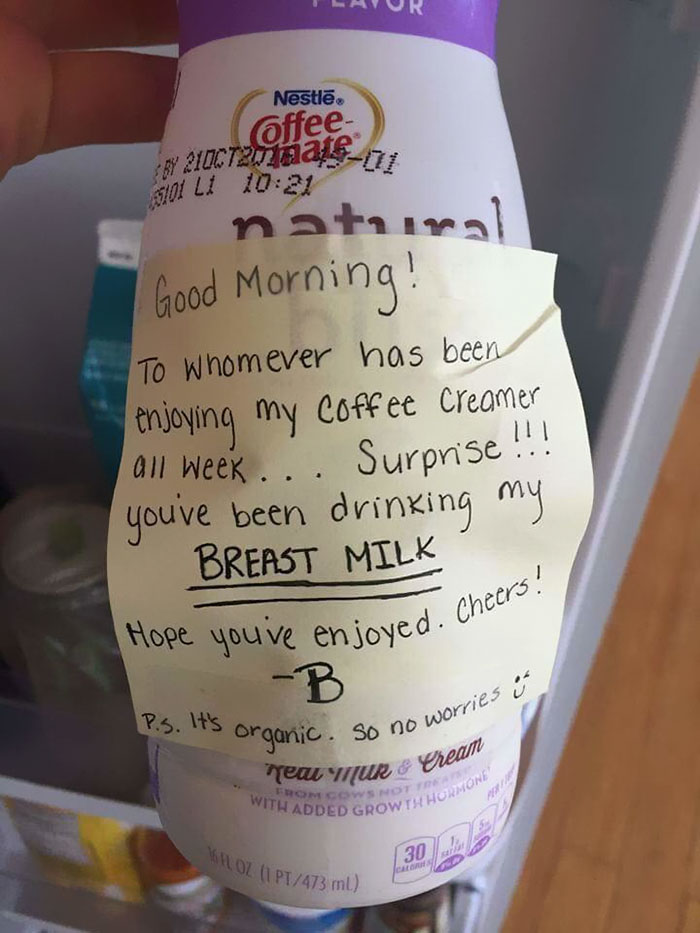 FLAVOR
Nestlé®
Coffee-
mate®
BY 21OCT2016 49-01
55101 L1 10:21
natural
Good Morning!
To whomever has been
enjoying my coffee creamer
all week.... Surprise!!!
you've been drinking my
BREAST MILK
Hope you've enjoyed. Cheers!
-B
P.S. It's organic. So no worries
Real Milk & Cream
FROM COWS NOT TREATED
WITH ADDED GROWTH HORMONE
16 FL OZ (1 PT/473 mL)
30
CALORIES